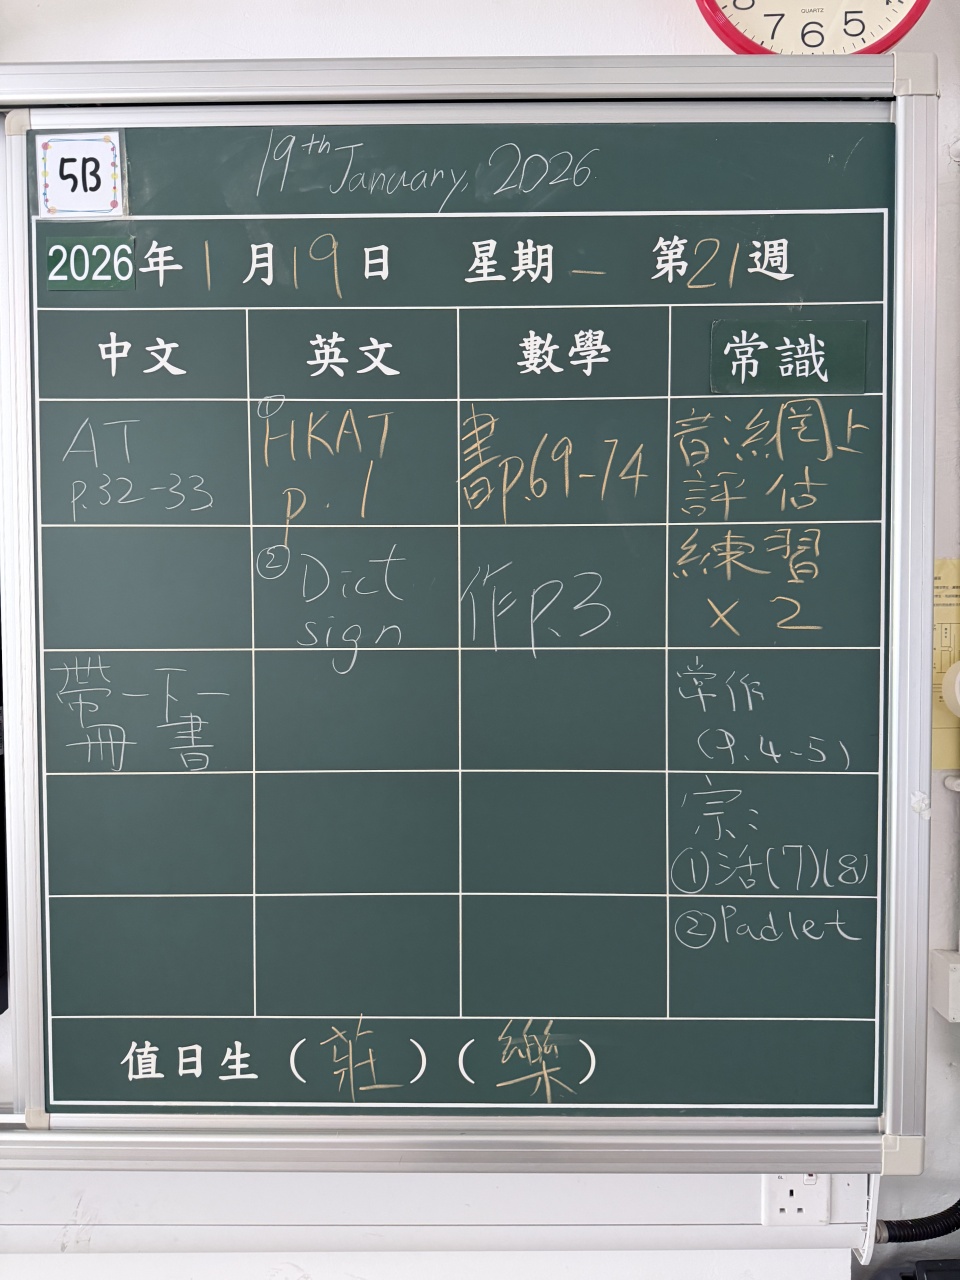 8 7 6 5
QUARTZ
5B
19th January, 2026
2026年1月19日 星期一 第21週
中文 英文 數學 常識
AT
p.32-33
① HKAT
p.1
書p.69-74
音流網上
評估
② Dict
sign
作p.3
練習
x2
帶一下一
冊書
常作
(P.4-5)
宗:
①活(7)(8)
②Padlet
值日生（莊）（樂）